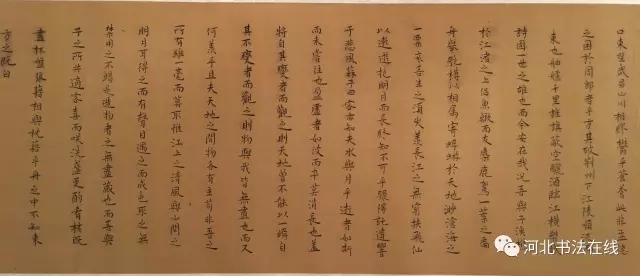 口東望武昌山川相繆鬱乎蒼蒼此非孟德
之困於周郎者乎方其破荊州下江陵順
東也舳艫千里旌旗蔽空釃酒臨江橫槊
詩固一世之雄也而今安在哉況吾與子漁樵
於江渚之上侶魚蝦而友麋鹿駕一葉之扁
舟舉匏樽以相屬寄蜉蝣於天地渺滄海之
一粟哀吾生之須臾羨長江之無窮挾飛仙
以遨遊抱明月而長終知不可乎驟得託遺響
于悲風蘇子曰客亦知夫水與月乎逝者如斯
而未嘗往也盈虛者如彼而卒莫消長也蓋
將自其變者而觀之則天地曾不能以一瞬自
其不變者而觀之則物與我皆無盡也而又
何羨乎且夫天地之間物各有主苟非吾之
所有雖一毫而莫取惟江上之清風與山間之
明月耳得之而有聲目遇之而成色取之無
禁用之不竭是造物者之無盡藏也而吾與
子之所共適客喜而咲洗盞更酌肴核既
盡杯盤狼籍相與枕藉乎舟之中不知東
方之既白
河北书法在线